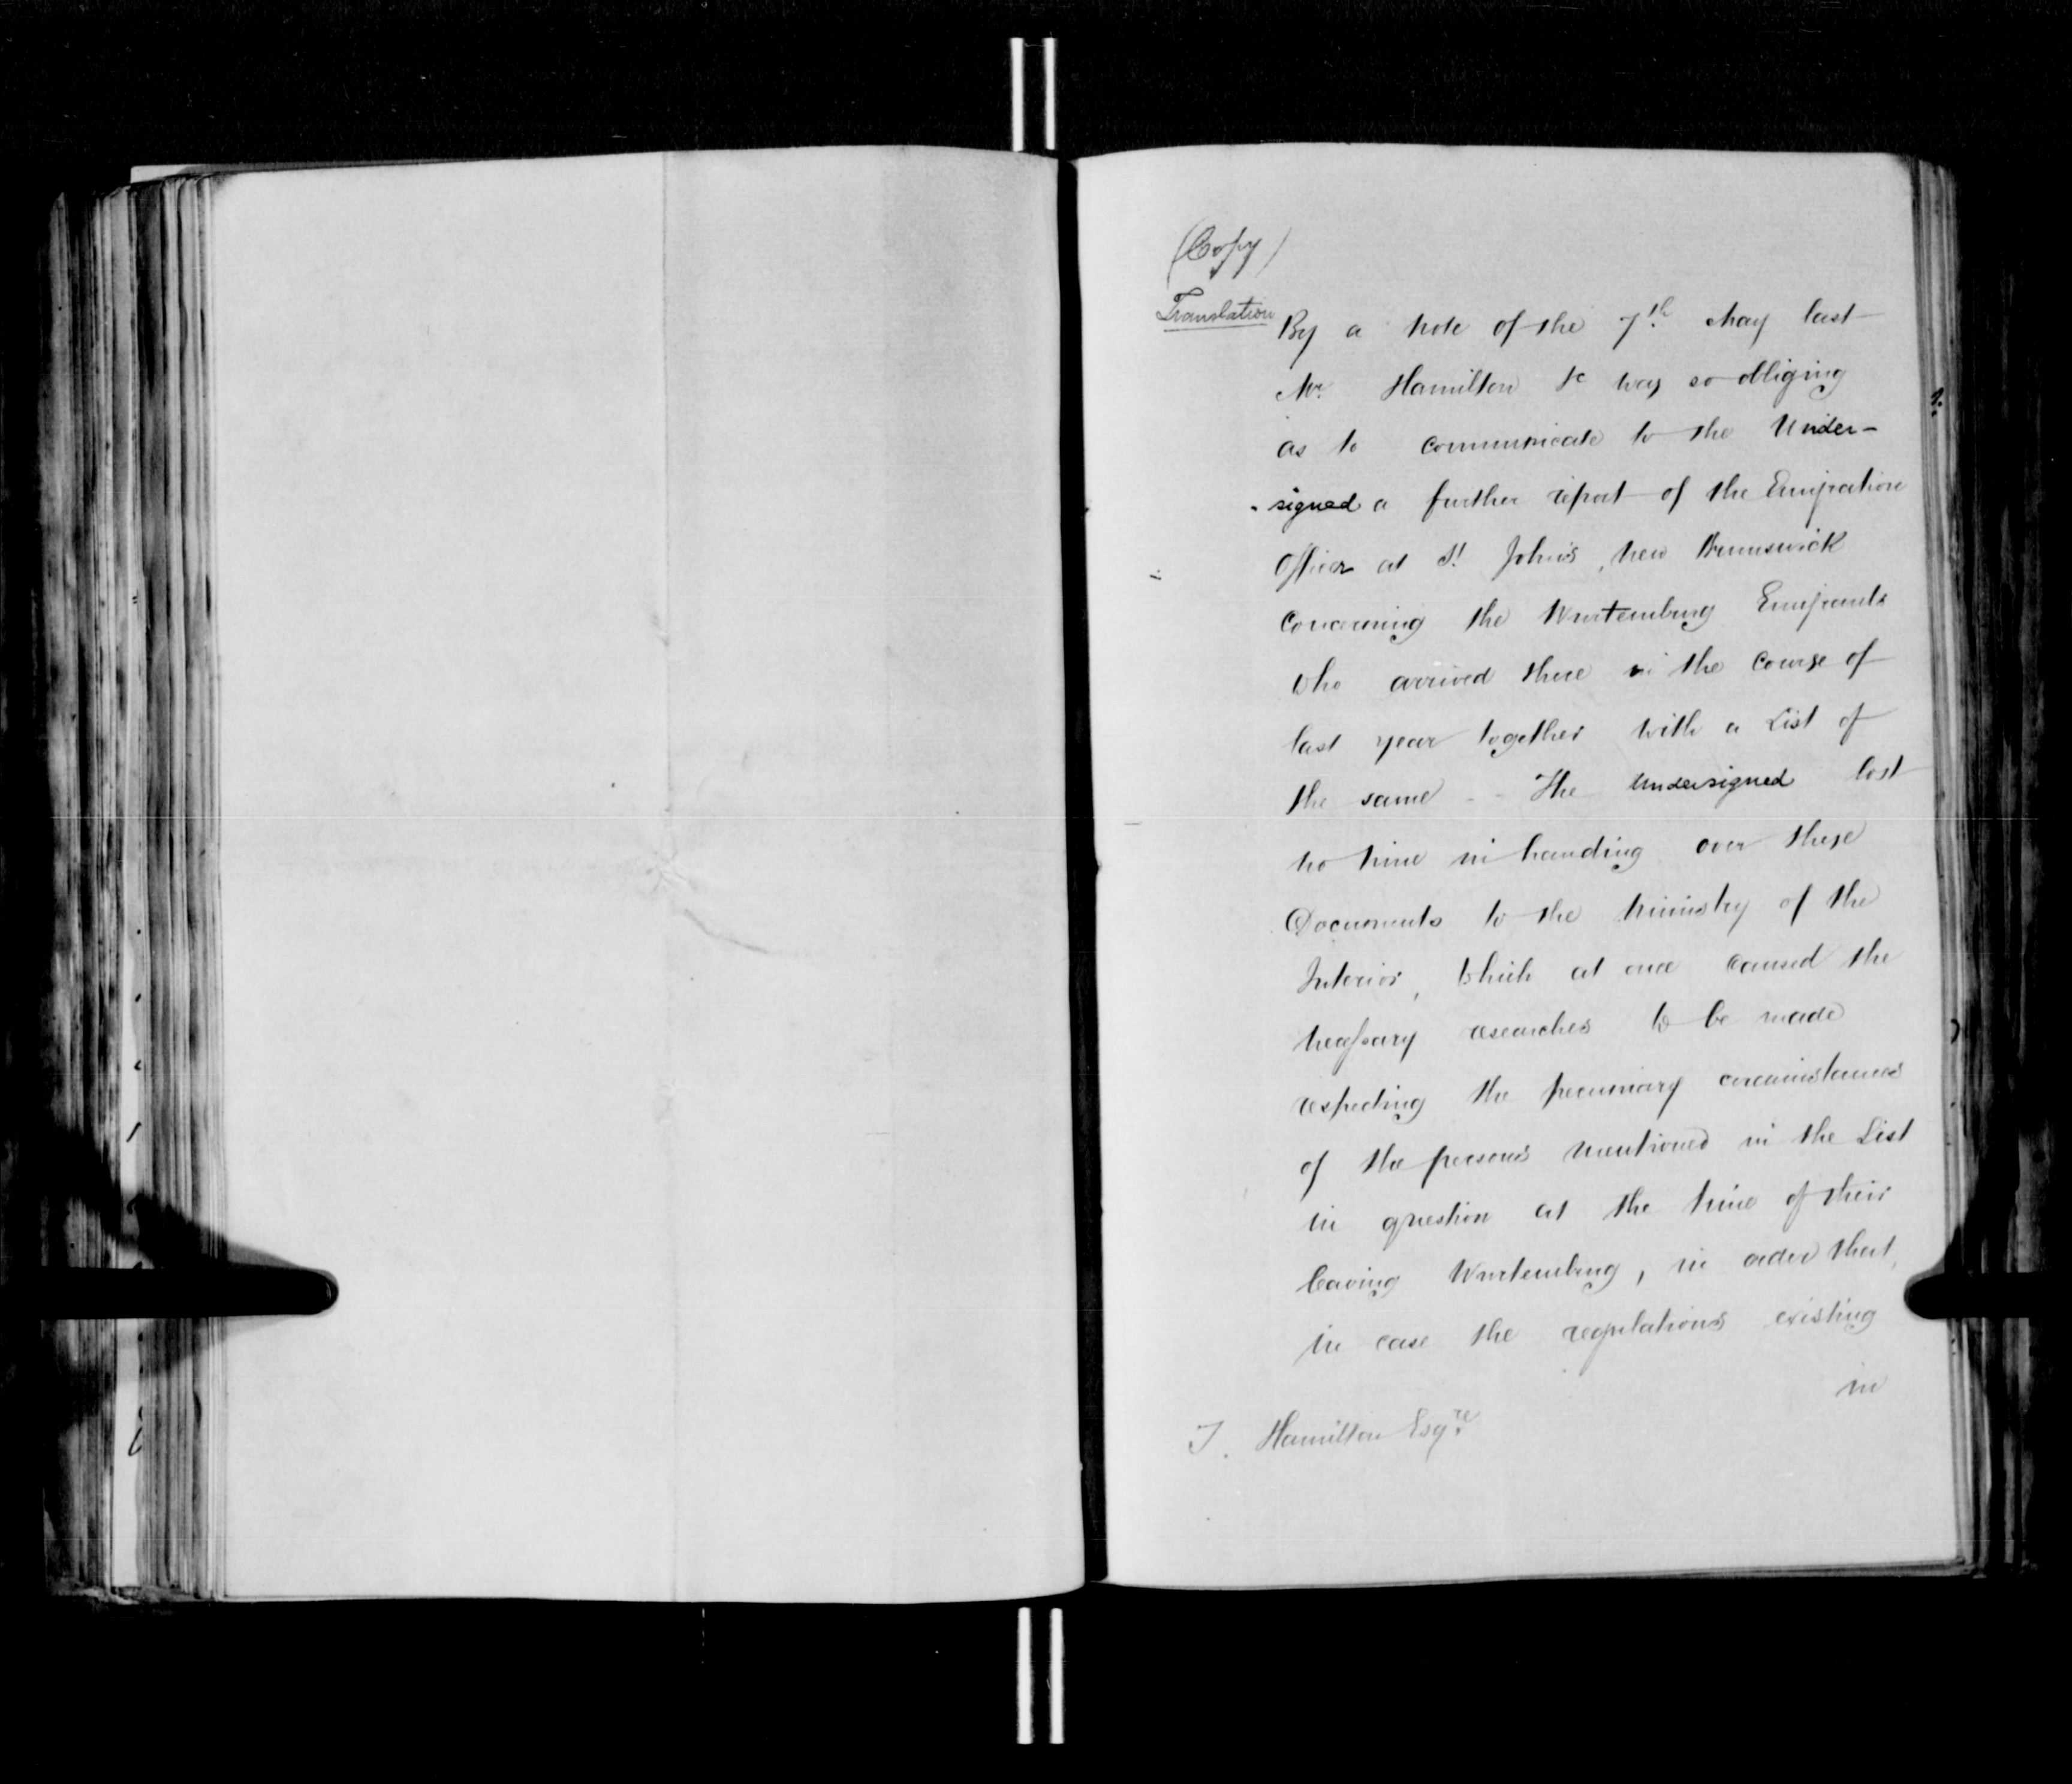 (Copy)
Translation
By a note of the 7th. May last
Mr. Hamilton &c was so obliging
as to communicate to the Under-
-signed a further report of the Emigration
Officer at St. John's, New Brunswick
concerning the Wurtemburg Emigrants
who arrived there in the course of
last year together with a List of
the same -- The Undersigned lost
no time in handing over these
Documents to the Ministry of the
Interior, which at once caused the
necessary researches to be made
respecting the pecuniary circumstances
of the persons mentioned in the List
in question at the time of their
leaving Wurtemburg, in order that,
in case the regulations existing
in
T. Hamilton Esqre.